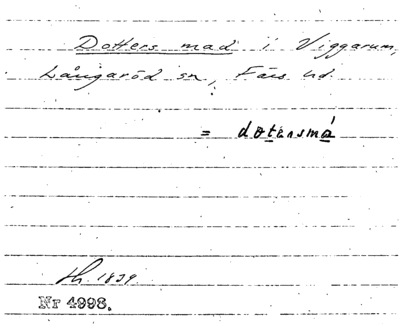 Dotters mad i Viggarum,
Långaröd sn, Färs hd.
= dotərsmá
Lh. 1839.
Nr 4998.